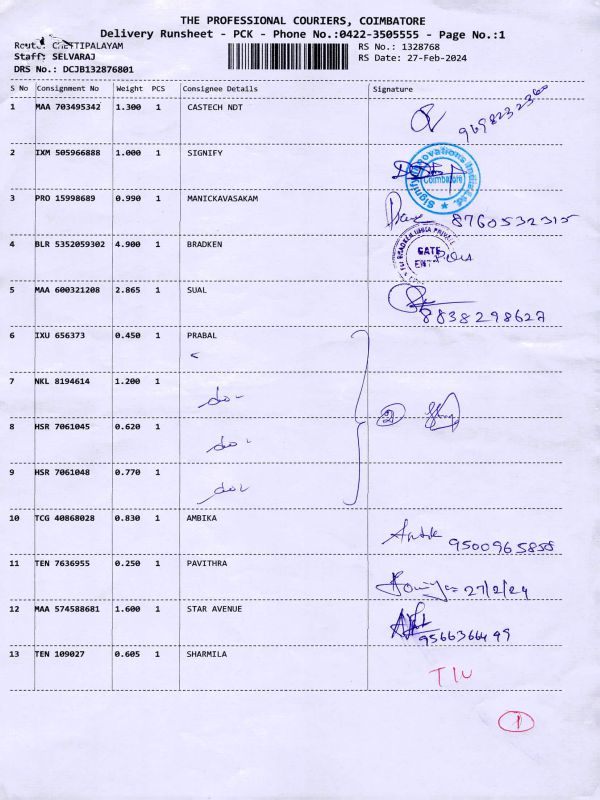 THE PROFESSIONAL COURIERS, COIMBATORE
Delivery Runsheet - PCK - Phone No.:0422-3505555 - Page No.:1
Route: CHETTIPALAYAM RS No.: 1328768
Staff: SELVARAJ RS Date: 27-Feb-2024
DRS No.: DCJB132876801
S No Consignment No Weight PCS Consignee Details Signature
1 MAA 703495342 1.300 1 CASTECH NDT
2 IXM 505966888 1.000 1 SIGNIFY
Signify Innovations India Ltd. Coimbatore
3 PRO 15998689 0.990 1 MANICKAVASAKAM
8760532315
4 BLR 5352059302 4.900 1 BRADKEN
GATE
5 MAA 600321208 2.865 1 SUAL
8838298627
6 IXU 656373 0.450 1 PRABAL
7 NKL 8194614 1.200 1 do-
8 HSR 7061045 0.620 1 do-
9 HSR 7061048 0.770 1 do-
10 TCG 40868028 0.830 1 AMBIKA
9500965858
11 TEN 7636955 0.250 1 PAVITHRA
27/2/24
12 MAA 574588681 1.600 1 STAR AVENUE
9566366499
13 TEN 109027 0.605 1 SHARMILA
1